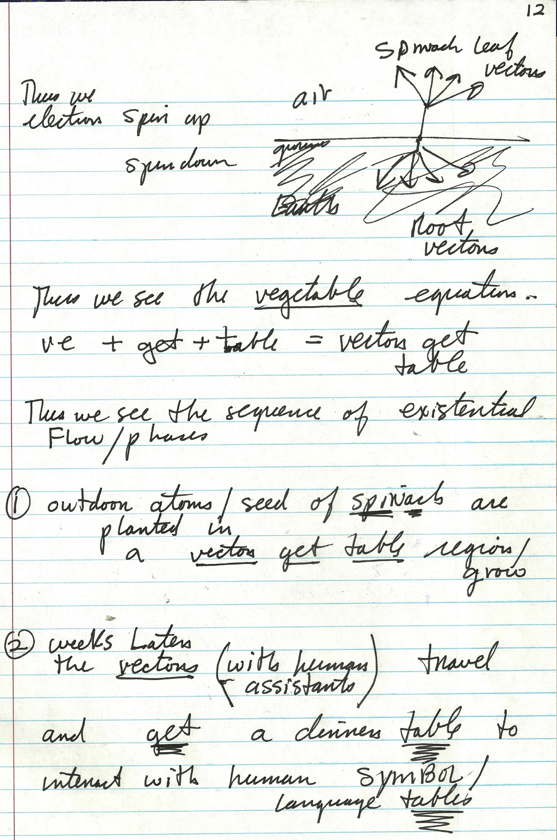 12
Spinach Leaf
vectors
Thus we
electron spin up
air
spin down
ground
Earths
Root
vectors
Thus we see the vegetable equation..
ve + get + table = vectors get
table
Thus we see the sequence of existential
Flow/phases
① outdoor atoms/seed of spinach are
planted in
a vectors get table region/
grow
② weeks Later
the vectors (with human
assistants) travel
and get a dinner table to
interact with human SYMBOL/
Language tables